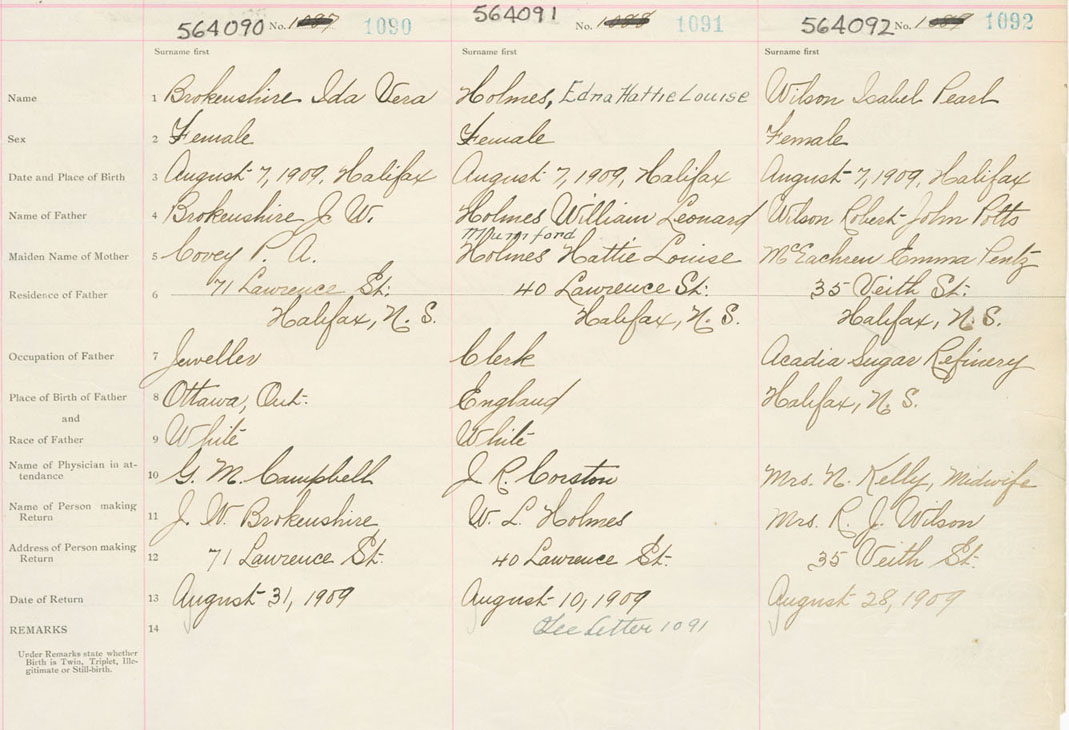 564090 No. 1087 1090 564091 No. 1088 1091 564092 No. 1089 1092
Surname first Surname first Surname first
Name 1 Brokenshire Ida Vera Holmes, Edna Hattie Louise Wilson Isabel Pearl
Sex 2 Female Female Female
Date and Place of Birth 3 August 7, 1909, Halifax August 7, 1909, Halifax August 7, 1909, Halifax
Name of Father 4 Brokenshire J. W. Holmes William Leonard Wilson Robert John Potts
Mumford
Maiden Name of Mother 5 Covey P. A. Holmes Hattie Louise McEachren Emma Pentz
Residence of Father 6 71 Lawrence St. 40 Lawrence St. 35 Veith St.
Halifax, N. S. Halifax, N. S. Halifax, N. S.
Occupation of Father 7 Jeweller Clerk Acadia Sugar Refinery
Place of Birth of Father 8 Ottawa, Ont. England Halifax, N. S.
and
Race of Father 9 White White
Name of Physician in at-
tendance 10 G. M. Campbell J R. Corston Mrs. N. Kelly, Midwife
Name of Person making
Return 11 J. W. Brokenshire W. L. Holmes Mrs. R. J. Wilson
Address of Person making
Return 12 71 Lawrence St. 40 Lawrence St. 35 Veith St.
Date of Return 13 August 31, 1909 August 10, 1909 August 28, 1909
REMARKS 14 See Letter 1091
Under Remarks state whether
Birth is Twin, Triplet, Ille-
gitimate or Still-birth.